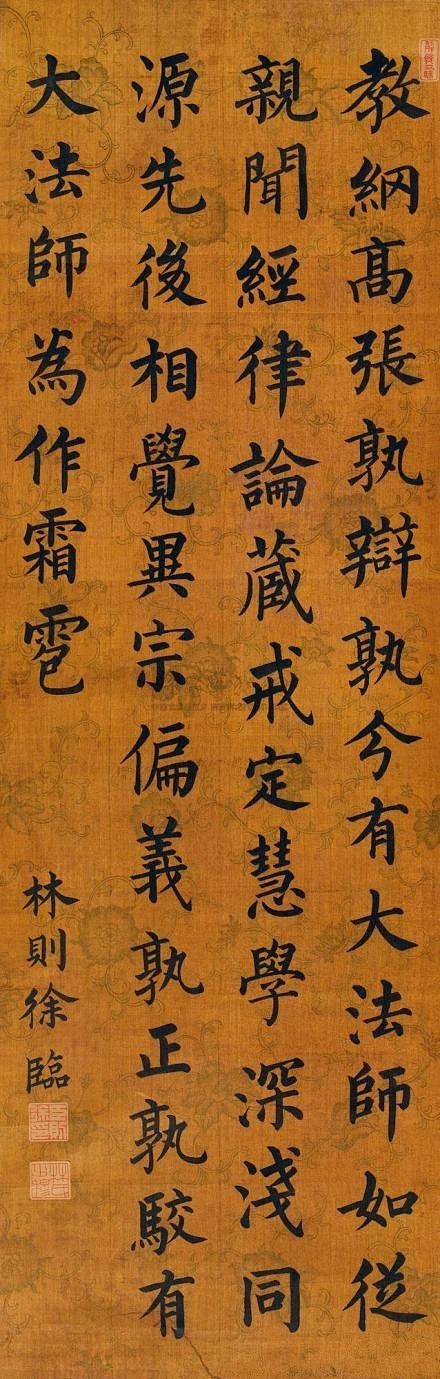 教綱高張孰辯孰分有大法師如從
親聞經律論藏戒定慧學深淺同
源先後相覺異宗偏義孰正孰駮有
大法師為作霜雹
林則徐臨